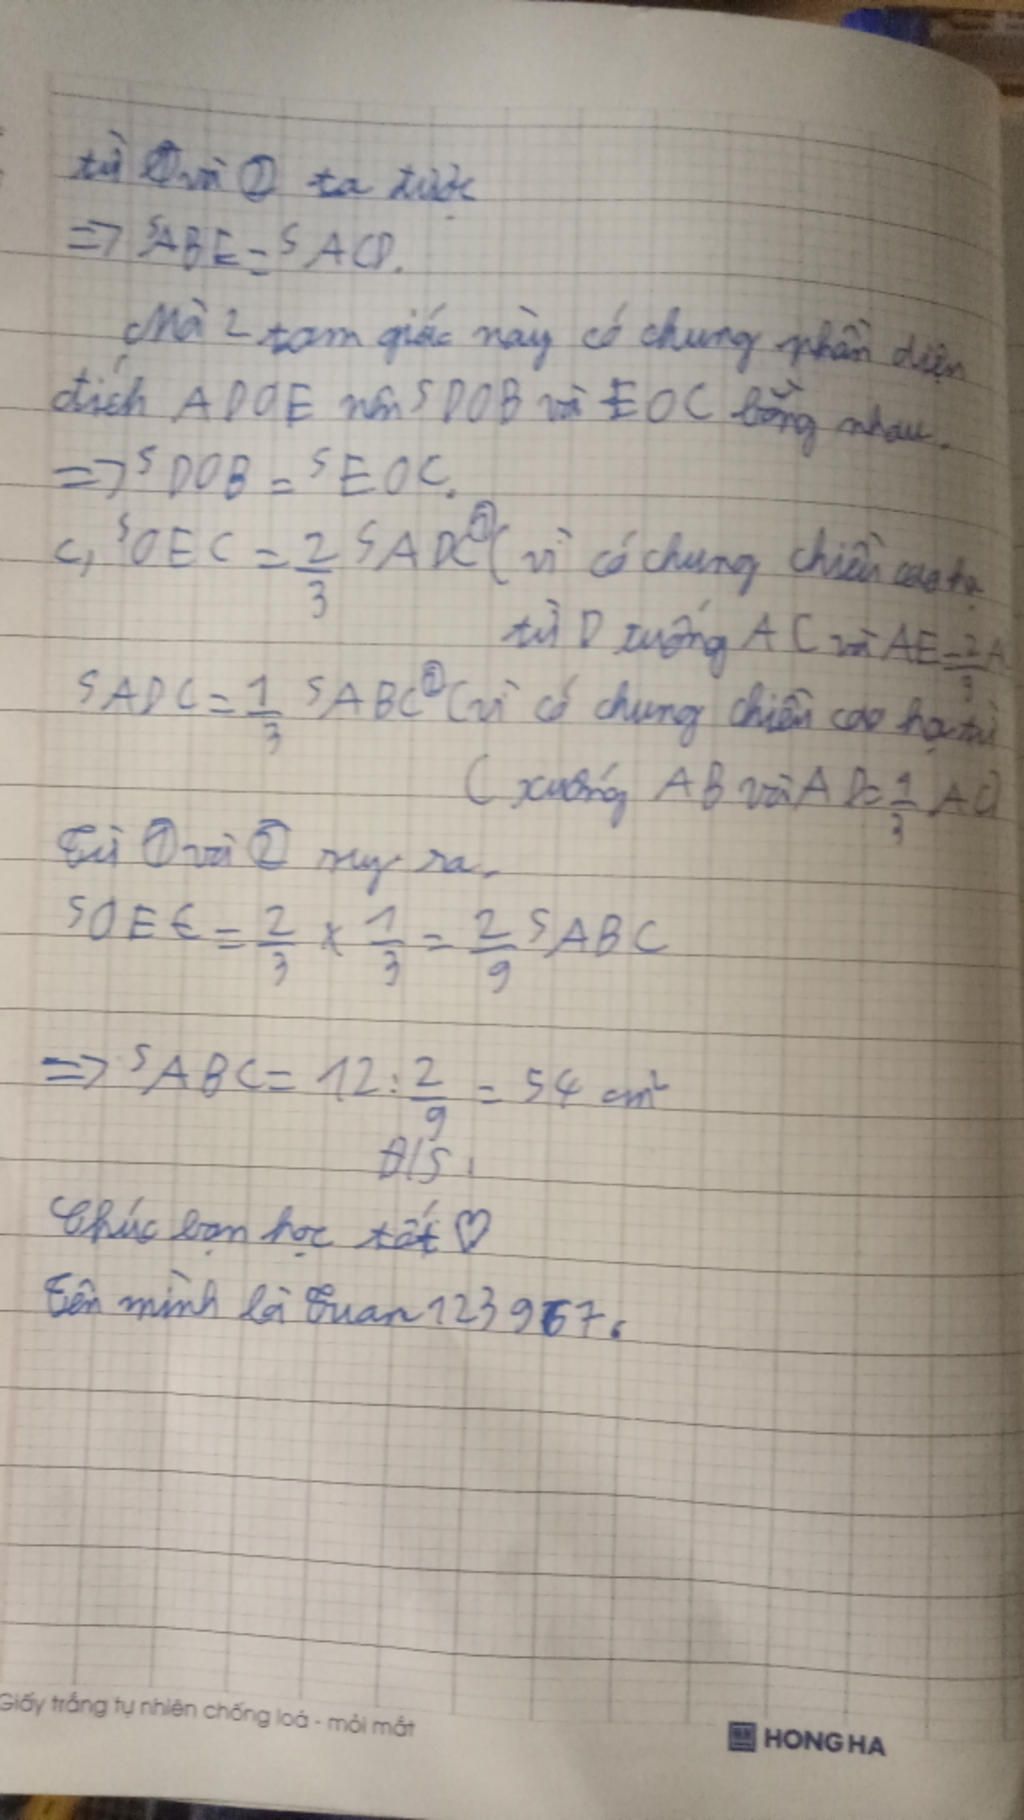 từ ① và ② ta được
=> SABE = SACD.
Mà 2 tam giác này có chung phần diện
tích ADOE nên SDOB và EOC bằng nhau.
=> SDOB = SEOC.
c, SOEC = 2/3 SADC ① (vì có chung chiều cao hạ
từ D xuống AC và AE = 2/3 A
SADC = 1/3 SABC ② (vì có chung chiều cao hạ từ
C xuống AB và AD = 1/3 AC)
Từ ① và ② suy ra.
SOEC = 2/3 x 1/3 = 2/9 SABC
=> SABC = 12 : 2/9 = 54 cm²
Đ/S.
Chúc bạn học tốt ♡
Tên mình là Tuan123967.
Giấy trắng tự nhiên chống loá - mỏi mắt
HONG HA